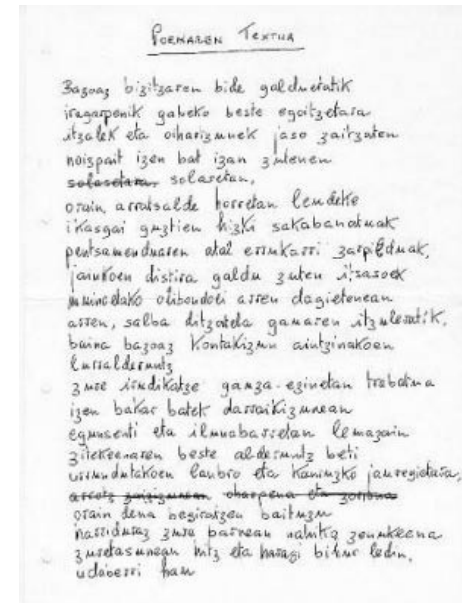 POEMAREN TEXTUA
Bazoaz bizitzaren bide galduetatik
iragarpenik gabeko beste egoitzetara
itzalek eta oiharizunek jaso zaitzaten
noizpait izen bat izan zutenen
solasetara, solasetan,
orain, arratsalde horretan lendeke
ikasgai guztien hizki sakabanatuak
pentsamenduaren atal errukarri zarpilduak,
distira galdu zuten itsasoek
olibondoei arren dagietenean
arren, salba ditzatela gauaren itzuletatik,
baina bazoaz Kontakizun aintzinakoen
lurralderuntz
zure irudikatze gauza-ezinetan trabatua
izen bakar batek darraikizunean
egunsenti eta ilunabarretan
beste alderuntz beti
urrundutakoen lanbro eta jauregietara,
oharpena eta
orain dena begiratzen baituzu
harriduraz zure barnean nahiko zenukeena
zuretasunean hitz eta haragi bihur ledin,
udaberri hau